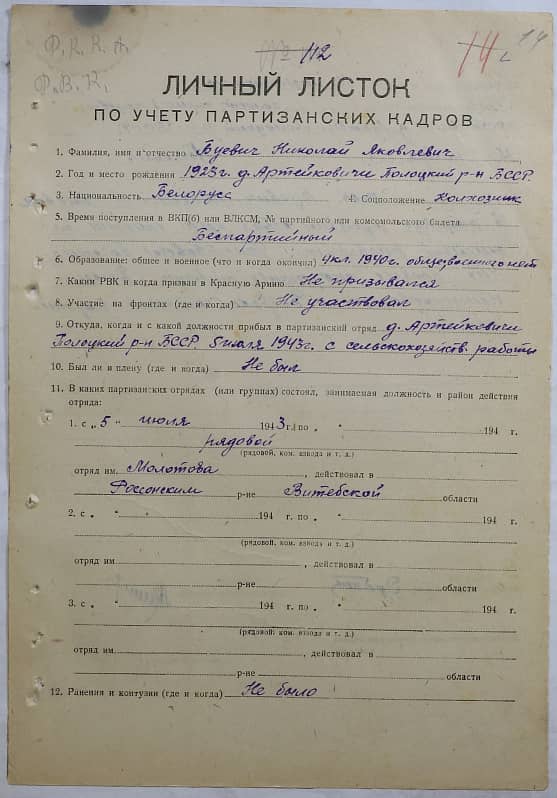 Р.К.К.А.
Р.В.К.
112 112
14
14
ЛИЧНЫЙ ЛИСТОК
ПО УЧЕТУ ПАРТИЗАНСКИХ КАДРОВ
1. Фамилия, имя и отчество Буевич Николай Яковлевич
2. Год и место рождения 1923г. д. Артейковичи Полоцкий р-н БССР
3. Национальность Белорусс 4. Соцположение Колхозник
5. Время поступления в ВКП(б) или ВЛКСМ, № партийного или комсомольского билета
Беспартийный
6. Образование: общее и военное (что и когда окончил) 4кл. 1940г. общее, военного нет
7. Каким РВК и когда призван в Красную Армию Не призывался
8. Участие на фронтах (где и когда) Не участвовал
9. Откуда, когда и с какой должности прибыл в партизанский отряд д. Артейковичи
Полоцкий р-н БССР 5 июля 1943г. с сельскохозяйств. работы
10. Был ли и плену (где и когда) Не был
11. В каких партизанских отрядах (или группах) состоял, занимаемая должность и район действия
отряда:
1. с „5" июля 1943г. по „ " 194 г.
рядовой
(рядовой, ком. взвода и т. д.)
отряд им. Молотова, действовал в
Россонским р-не Витебской области
2. с „ " 194 г. по „ " 194 г.
(рядовой, ком. взвода и т. д.)
отряд им. , действовал в
р-не области
3. с „ " 194 г. по „ " 194 г.
(рядовой, ком. взвода и т. д.)
отряд им. , действовал в
р-не области
12. Ранения и контузии (где и когда) Не было